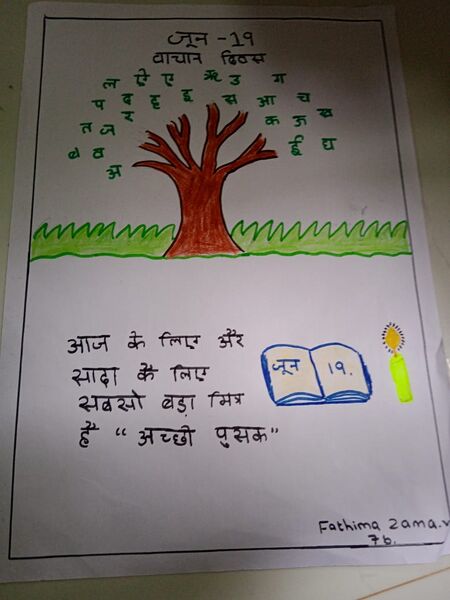 जून - 19
वाचान दिवस
ल ऐ ए ऋ उ ग
प द ह इ स आ च
त ज र क अ ख
ब व ई घ
अ
आज के लिए और
सादा के लिए
सबसो बड़ा मित्र
है “ अच्छी पुसक”
जून 19.
Fathima Zama.
7b.